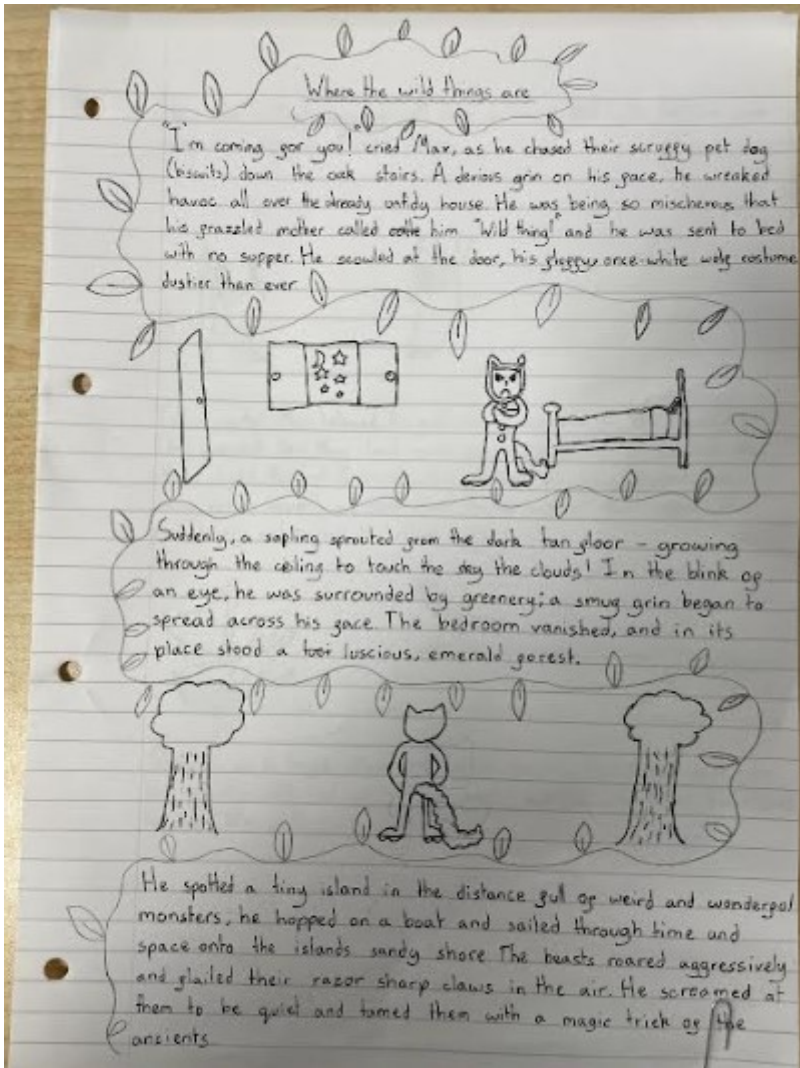 Where the wild things are
"I'm coming for you!" cried Max, as he chased their scruffy pet dog
(biscuits) down the oak stairs. A devious grin on his face, he wreaked
havoc all over the already untidy house. He was being so mischevous that
his frazzled mother called him "Wild thing!" and he was sent to bed
with no supper. He scowled at the door, his fluffy, once-white wolf costume
dustier than ever
Suddenly, a sapling sprouted from the dark tan floor - growing
through the ceiling to touch the sky the clouds! In the blink of
an eye, he was surrounded by greenery; a smug grin began to
spread across his face. The bedroom vanished, and in its
place stood a luscious, emerald forest.
He spotted a tiny island in the distance full of weird and wonderful
monsters, he hopped on a boat and sailed through time and
space onto the islands sandy shore The beasts roared aggressively
and flailed their razor sharp claws in the air. He screamed at
them to be quiet and tamed them with a magic trick of the
ancients